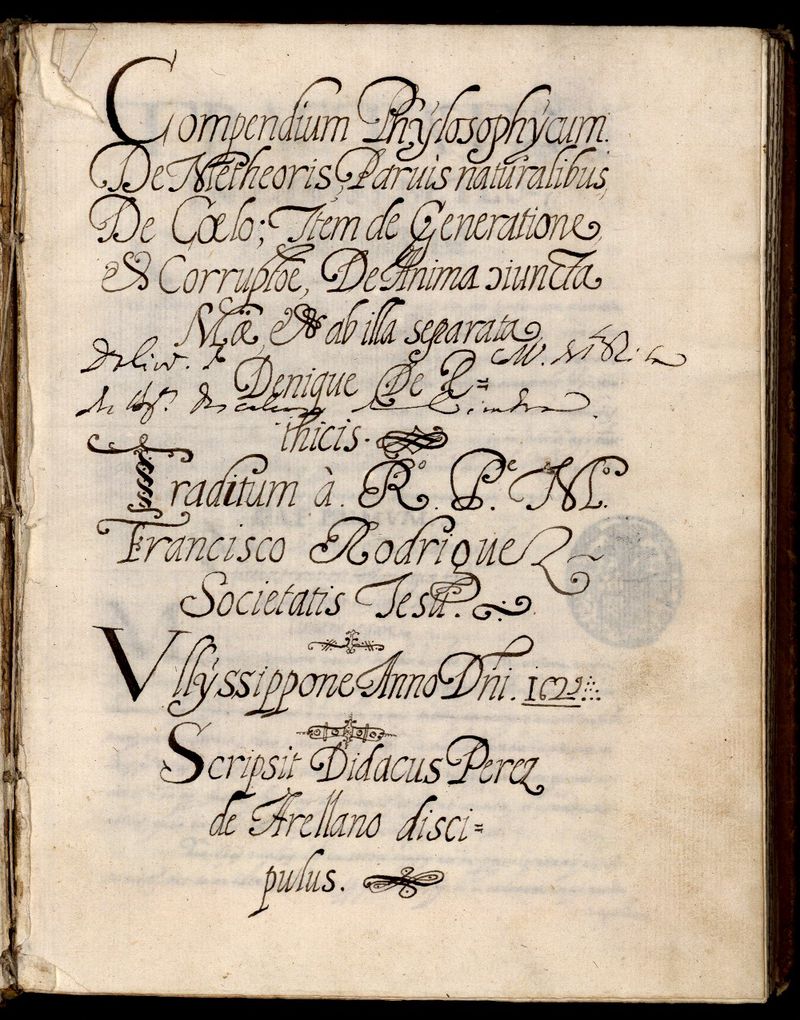 Compendium Phylosophycum.
De Metheoris, Paruis naturalibus,
De Cœlo; Item de Generatione,
& Corruptõe, De Anima ɔiuncta
Mã, & ab illa separata,
Denique De E=
thicis.
Traditum à. R.º P.ᵉ M.º
Francisco Rodriguez
Societatis Iesu.
Vllyssippone Anno Dñi.
Scripsit Didacus Perez
de Arellano disci=
pulus.